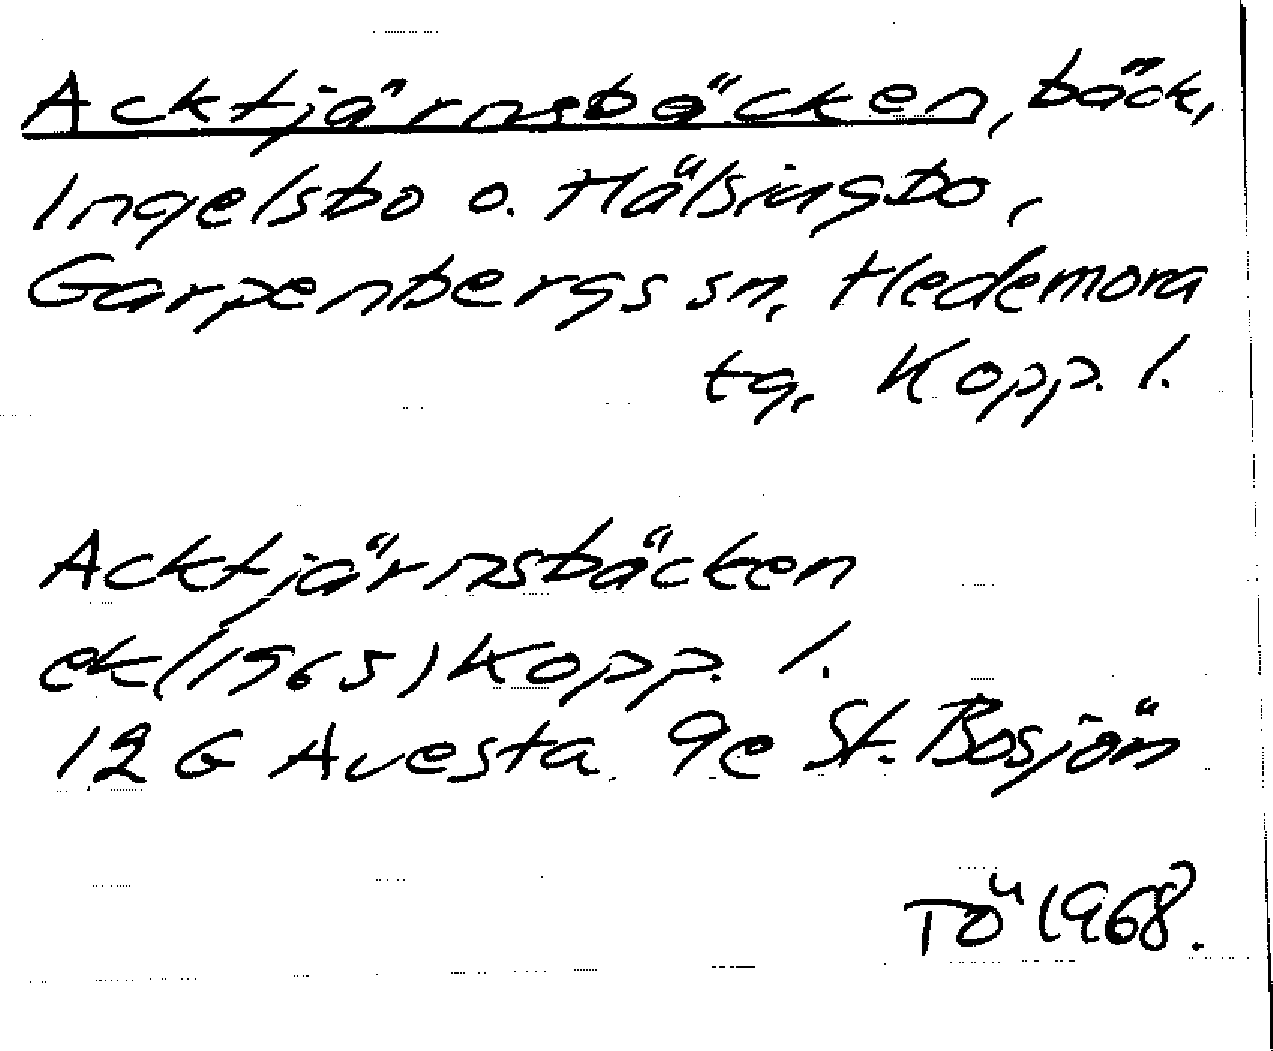 Acktjärnsbäcken, bäck,
Ingelsbo o. Hälsingbo,
Garpenbergs sn, Hedemora
tg, Kopp. l.
Acktjärnsbäcken
ek (1965) Kopp. l.
12 G Avesta 9e St. Bosjön
TÖ 1968.